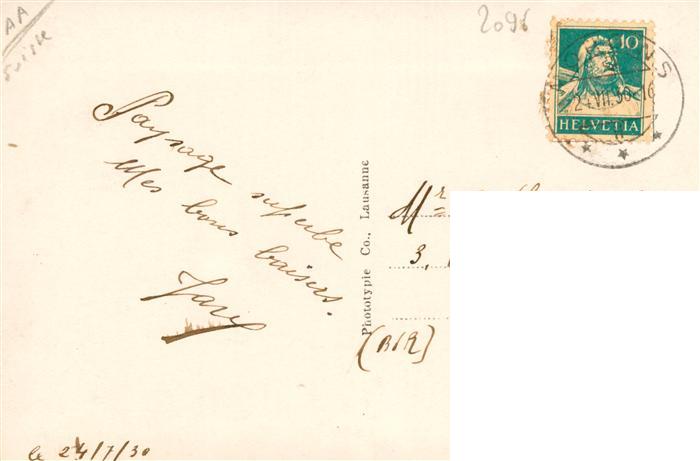 AA
Suisse
2096
10
HELVETIA
24.VII.30-16
Paysage superbe
Mes bons baisers.
Mr
3,
(B/R)
Phototypie Co., Lausanne
le 24/7/30